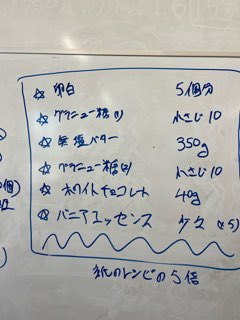 ☆ 卵白 5個分
☆ グラニュー糖(1) 小さじ10
☆ 無塩バター 350g
☆ グラニュー糖(2) 小さじ10
☆ ホワイトチョコレート 40g
☆ バニラエッセンス 少々 (×5)
紙のレシピの5倍